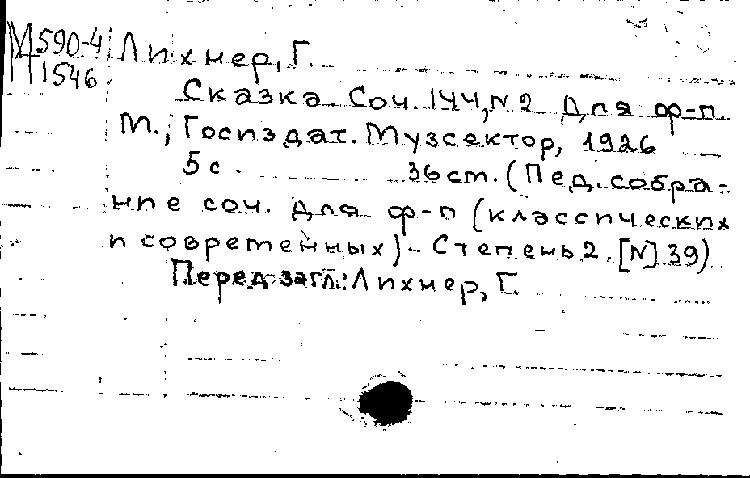 М590-4 Лихнер, Г.
1546
Сказка. Соч. 144, N2 Для ф-п
М.; Госиздат. Музсектор, 1926
5 с. 36 ст. (Пед. собра-
ние соч. для ф-п (классических
и современных).- Степень 2. [N] 39)
Перед загл.: Лихнер, Г.